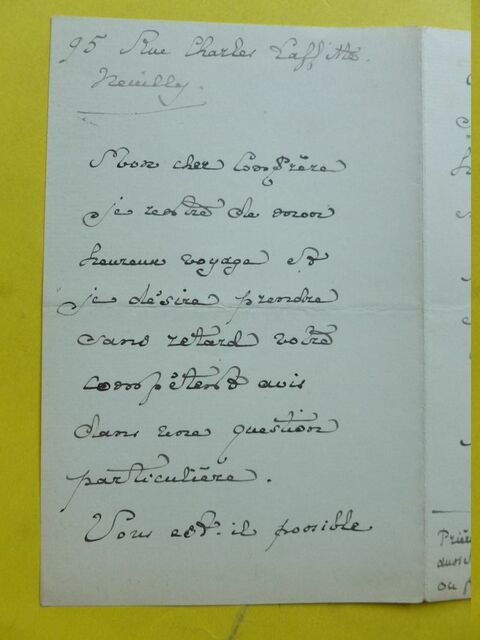 95 Rue Charles Laffitte.
Neuilly.
Mon cher Confrère
je rentre de mon
heureux voyage et
je désire prendre
sans retard votre
compétent avis
dans une question
particulière.
Vous est-il possible
Prière
ou